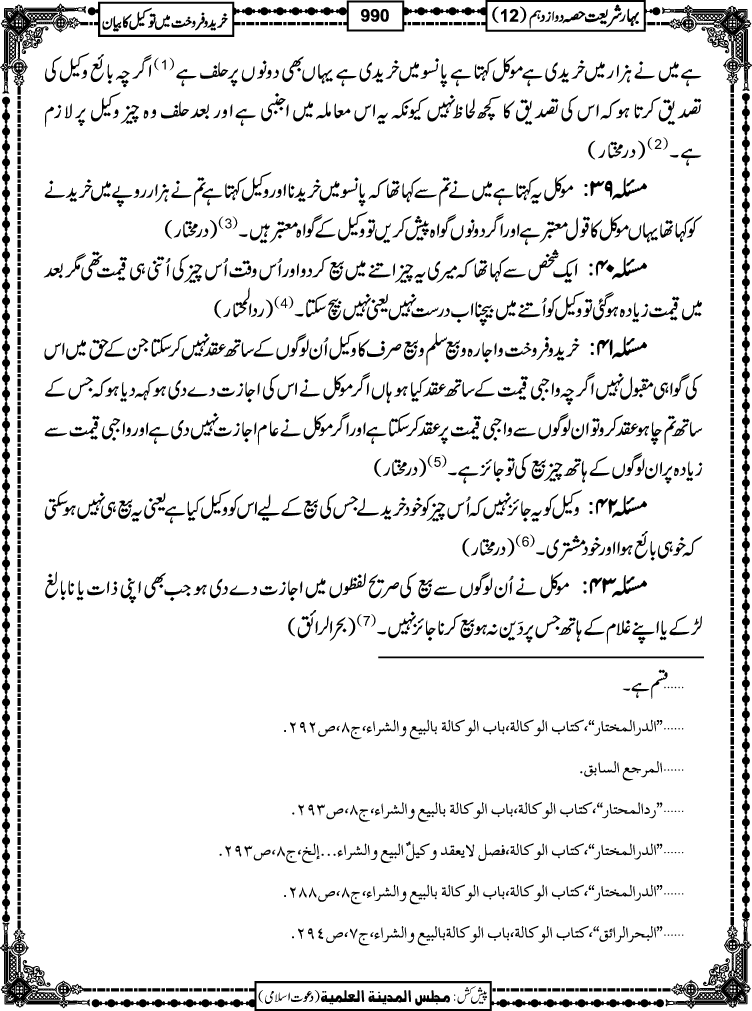 بہار شریعت حصہ دوازدہم (12)
990
خرید و فروخت میں توکیل کا بیان
ہے میں نے ہزار میں خریدی ہے موکل کہتا ہے پانسو میں خریدی ہے یہاں بھی دونوں پر حلف ہے (1) اگرچہ بائع وکیل کی
تصدیق کرتا ہو کہ اس کی تصدیق کا کچھ لحاظ نہیں کیونکہ یہ اس معاملہ میں اجنبی ہے اور بعد حلف وہ چیز وکیل پر لازم
ہے۔ (2) (درمختار)
مسئلہ ۳۹: موکل یہ کہتا ہے میں نے تم سے کہا تھا کہ پانسو میں خریدنا اور وکیل کہتا ہے تم نے ہزار روپے میں خریدنے
کو کہا تھا یہاں موکل کا قول معتبر ہے اور اگر دونوں گواہ پیش کریں تو وکیل کے گواہ معتبر ہیں۔ (3) (درمختار)
مسئلہ ۴۰: ایک شخص سے کہا تھا کہ میری یہ چیز اتنے میں بیع کر دو اور اُس وقت اُس چیز کی اُتنی ہی قیمت تھی مگر بعد
میں قیمت زیادہ ہوگئی تو وکیل کو اُتنے میں بیچنا اب درست نہیں یعنی نہیں بیچ سکتا۔ (4) (ردالمحتار)
مسئلہ ۴۱: خرید و فروخت و اجارہ و بیع سلم و بیع صرف کا وکیل اُن لوگوں کے ساتھ عقد نہیں کرسکتا جن کے حق میں اس
کی گواہی مقبول نہیں اگرچہ واجبی قیمت کے ساتھ عقد کیا ہو ہاں اگر موکل نے اس کی اجازت دے دی ہو کہہ دیا ہو کہ جس کے
ساتھ تم چاہو عقد کرو تو ان لوگوں سے واجبی قیمت پر عقد کرسکتا ہے اور اگر موکل نے عام اجازت نہیں دی ہے اور واجبی قیمت سے
زیادہ پر ان لوگوں کے ہاتھ چیز بیع کی تو جائز ہے۔ (5) (درمختار)
مسئلہ ۴۲: وکیل کو یہ جائز نہیں کہ اُس چیز کو خود خرید لے جس کی بیع کے لیے اس کو وکیل کیا ہے یعنی یہ بیع ہی نہیں ہوسکتی
کہ خود ہی بائع ہوا اور خود مشتری۔ (6) (درمختار)
مسئلہ ۴۳: موکل نے اُن لوگوں سے بیع کی صریح لفظوں میں اجازت دے دی ہو جب بھی اپنی ذات یا نابالغ
لڑکے یا اپنے غلام کے ہاتھ جس پر دَین نہ ہو بیع کرنا جائز نہیں۔ (7) (بحرالرائق)
......قسم ہے۔
......"الدرالمختار"، کتاب الوکالة، باب الوکالة بالبیع والشراء، ج۸، ص۲۹۲.
......المرجع السابق.
......"ردالمحتار"، کتاب الوکالة، باب الوکالة بالبیع والشراء، ج۸، ص۲۹۳.
......"الدرالمختار"، کتاب الوکالة، فصل لایعقد وکیلُ البیع والشراء...إلخ، ج۸، ص۲۹۳.
......"الدرالمختار"، کتاب الوکالة، باب الوکالة بالبیع والشراء، ج۸، ص۲۸۸.
......"البحرالرائق"، کتاب الوکالة، باب الوکالةبالبیع والشراء، ج۷، ص۲۹٤.
پیش کش: مجلس المدینة العلمیة (دعوت اسلامی)